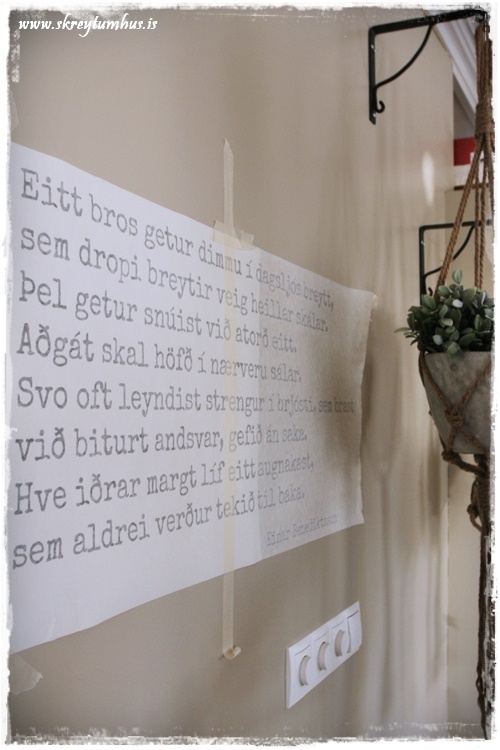 www.skreytumhus.is
Eitt bros getur dimmu í dagsljós breytt,
sem dropi breytir veig heillar skálar.
Þel getur snúist við atorð eitt.
Aðgát skal höfð í nærveru sálar.
Svo oft leyndist strengur í brjósti, sem brast
við biturt andsvar, gefið án saka.
Hve iðrar margt líf eitt augnakast,
sem aldrei verður tekið til baka.
Einar Benediktsson